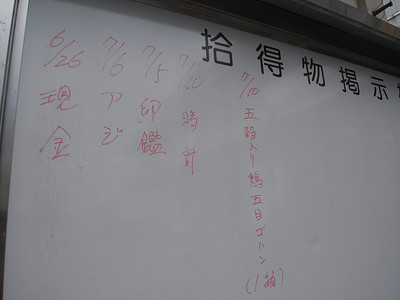 拾得物掲示
7/10 五穀入り鶏五目ゴハン(1箱)
7/10 時計
7/5 印鑑
7/6 アジ
6/26 現金